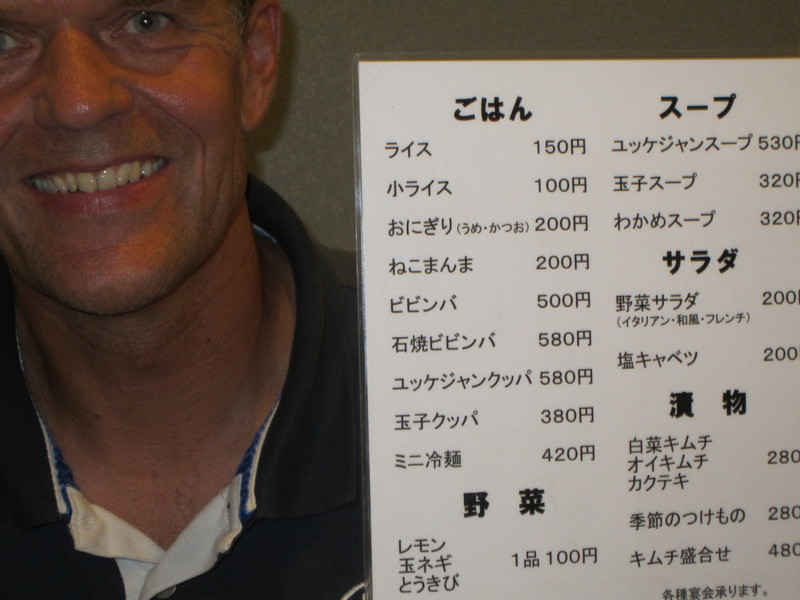 ごはん
ライス 150円
小ライス 100円
おにぎり(うめ・かつお) 200円
ねこまんま 200円
ビビンバ 500円
石焼ビビンバ 580円
ユッケジャンクッパ 580円
玉子クッパ 380円
ミニ冷麺 420円
野菜
レモン
玉ネギ 1品100円
とうきび
スープ
ユッケジャンスープ 530円
玉子スープ 320円
わかめスープ 320円
サラダ
野菜サラダ 200
(イタリアン・和風・フレンチ)
塩キャベツ 200
漬物
白菜キムチ
オイキムチ 280
カクテキ
季節のつけもの 280
キムチ盛合せ 480
各種宴会承ります。